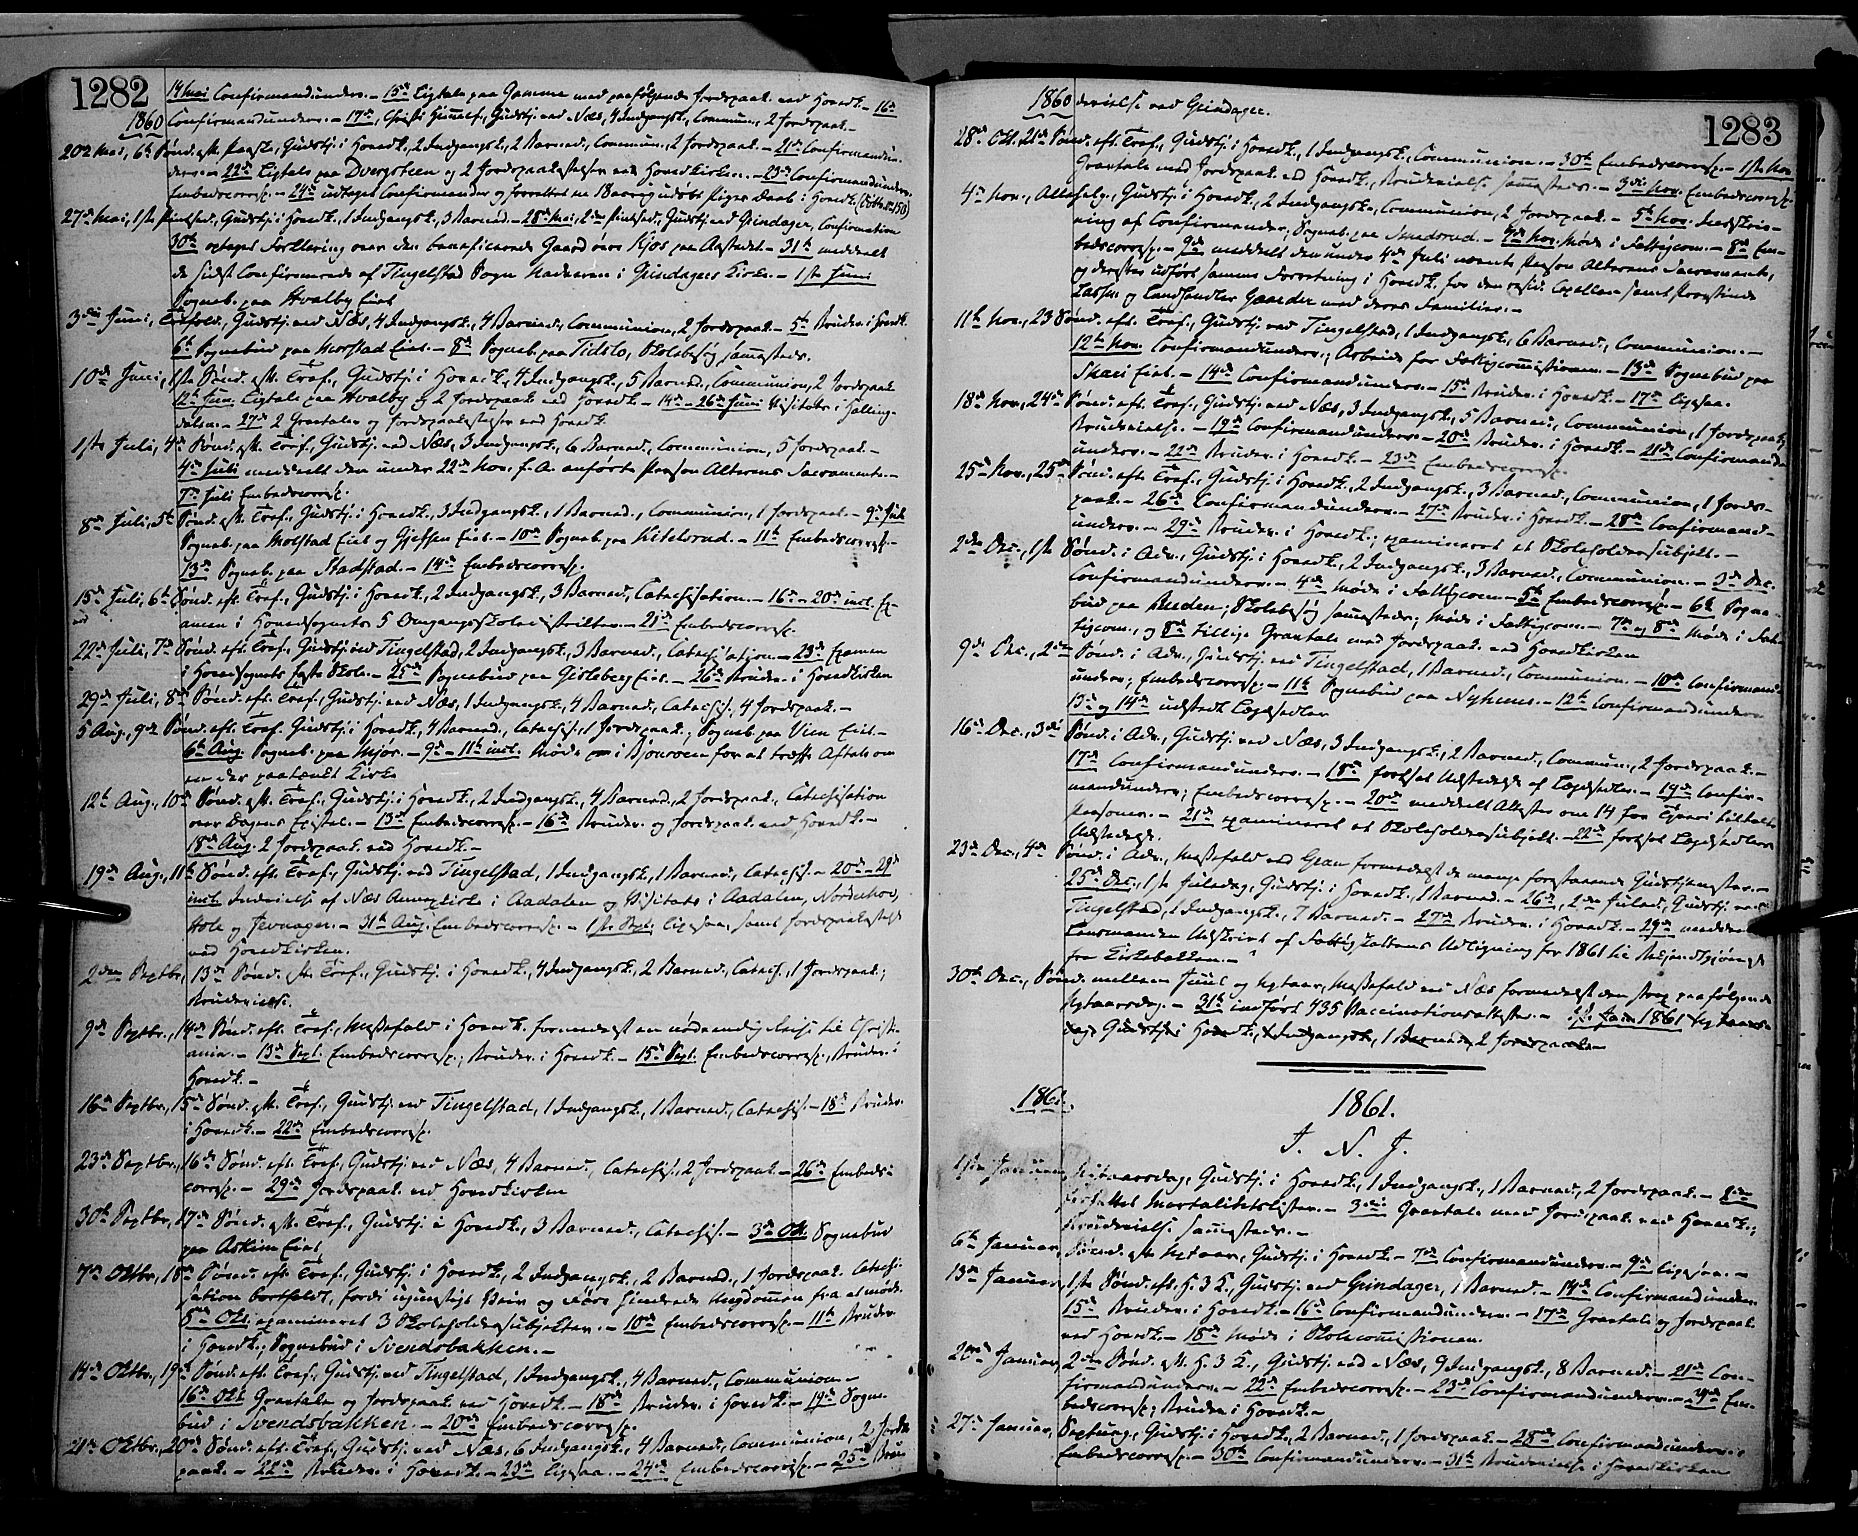 1282
1860
14 Mai Confirmandunderv. – 15de Ligtale paa Gamme med paafølgende Jordspaak. ved Hovedk. – 16de
Confirmandunderv. – 17de Christi Himmelf., Gudstj. ved Næs, 4 Indgangsk., Commun., 2 Jordspaak. –
20de Mai, 6te Sønd. eft. Paaske, Gudstj. i Hovedk., 2 Indgangsk., 2 Barned., Commun., 2 Jordspaak. – 21de Confirmandun-
derv. – 22de Ligtale paa Dvergsteen og 2 Jordspaakastelser ved Hovedkirken. – 23de Confirmandunderv.
Embedscorresp. – 24de Confirmander og forrettet en 18aarig Piges Daab i Hovedk.
27de Mai, 1ste Pintsed., Gudstj. i Hovedk., 1 Indgangsk., 3 Barned. – 28de Mai, 2den Pintsed., Gudstj. ved Grindager, Confirmation
30te optaget Forretning over den beneficerede Gaard øvre Kjos paa Aastedet – 31te meddelt
de sidst Confirmerede af Tingelstad Sogn Nadveren i Grindagers Kirke. – 1ste Juni
Sogneb. paa Hvalby Eiet
3die Juni, Trefold., Gudstj. ved Næs, 4 Indgangsk., 4 Barned., Communion, 2 Jordspaak. – 5te Brudev. i Hovedk.
6te Sognebud paa Morstad Eiet. – 8de Sogneb. paa Tidslo, Skolebesøg sammesteds.
10de Juni, 1ste Sønd. eft. Tref., Gudstj. i Hovedk., 4 Indgangsk., 5 Barned., Communion, 2 Jordspaak.
12te Juni Ligtale paa Hvalby og 2 Jordspaak. ved Hovedk. – 14de–26de Juni Visitats i Halling-
dalen. – 27de 2 Gravtaler og Jordspaakastelser ved Hovedk.
1ste Juli, 4de Sønd. eft. Tref., Gudstj. ved Næs, 3 Indgangsk., 6 Barned., Communion, 5 Jordspaak. –
4de Juli meddelt den under 22de Nov. f. A. anførte Person Alterens Sacramente. –
7de Juli Embedscorresp.
8de Juli, 5te Sønd. eft. Tref., Gudstj. i Hovedk., 3 Indgangsk., 1 Barned., Communion, 1 Jordspaak. – 9de Juli
Sogneb. paa Molstad Eiet og Gjefsen Eiet. – 10de Sogneb. paa – 11te Embedscorresp. –
13de Sogneb. paa Stadstad. – 14de Embedscorresp.
15de Juli, 6te Sønd. eft. Tref., Gudstj. i Hovedk., 2 Indgangsk., 3 Barned., Catechisation. – 16de–20de incl. Ex-
amen i Hovedsognets 5 Omgangsskoledistrikter. – 21de Embedscorresp.
22de Juli, 7de Sønd. eft. Tref., Gudstj. ved Tingelstad, 2 Indgangsk., 3 Barned., Catechisation. – 23de Examen
i Hovedsognets faste Skole. – 25de Sognebud paa Gisleberg Eiet. – 26de Brudev. i Hovedkirken
29de Juli, 8de Sønd. eft. Tref., Gudstj. ved Næs, 1 Indgangsk., 4 Barned., Catechis., 4 Jordspaak. –
5 Aug., 9de Sønd. eft. Tref., Gudstj. i Hovedk., 4 Barned., Catechis., 1 Jordspaak., Sogneb. paa Vien Eiet. –
6te Aug. Sogneb. paa Mjør. – 9de–11te incl. Møde i for at træffe Aftale om
en der paatænkt Kirke
12te Aug., 10de Sønd. eft. Tref., Gudstj. i Hovedk., 2 Indgangsk., 4 Barned., 2 Jordspaak., Catechisation
over Dagens Epistel. – 13de Embedscorresp. – 16de Brudev. og Jordspaak. ved Hovedk. –
18de Aug. 2 Jordspaak. ved Hovedk. –
19de Aug., 11te Sønd. eft. Tref., Gudstj. ved Tingelstad, 1 Indgangsk., 1 Barned., Catechis. – 20de–29de
incl. Indvielse af Næs Annexkirke i Aadalen og Visitats i Aadalen, Norderhov,
Hole og Jevnager. – 31te Aug. Embedscorresp. – 1ste Sept. Ligesaa, samt Jordspaakastelse
ved Hovedkirken.
2den Septbr., 13de Sønd. eft. Tref., Gudstj. i Hovedk., 4 Indgangsk., 2 Barned., Catech., 1 Jordspaak.;
Brudevielse.
9de Septbr., 14de Sønd. eft. Tref., Messefald i Hovedk. formedelst en nødvendig Reise til Christi-
ania. – 13de Sept. Embedscorresp.; Brudev. i Hovedk. – 15de Sept. Embedscorresp., Brudev. i
Hovedk. –
16de Septbr., 15de Sønd. eft. Tref., Gudstj. ved Tingelstad, 1 Indgangsk., 1 Barned., Catechis. – 18de Brudev.
i Hovedk. – 22de Embedscorresp.
23de Septbr., 16de Sønd. eft. Tref., Gudstj. ved Næs, 4 Barned., Catechis., 2 Jordspaak. – 26de Embeds-
corresp. – 29de Jordspaak. ved Hovedkirken
30te Septbr., 17de Sønd. eft. Tref., Gudstj. i Hovedk., 3 Barned., Catechis. – 3de Okt. Sognebud
paa Askim Eiet
7de Oktbr., 18de Sønd. eft. Tref., Gudstj. i Hovedk., 2 Indgangsk., 2 Barned., 1 Jordspaak. Catechi-
sation bortfaldt, fordi ugunstigt Veir og Føre hindrede Ungdommen fra at møde.
8de Okt. examineret 3 Skoleholdersubjekter. – 10de Embedscorresp. – 11te Brudev.
i Hovedk.; Sognebud i Svendsbakken. –
14de Oktbr., 19de Sønd. eft. Tref., Gudstj. ved Tingelstad, 1 Indgangsk., 4 Barned., Communion. –
16de Okt. Gravtale og Jordspaak. ved Hovedk. – 18de Brudev. i Hovedk. – 19de Sogne-
bud i Svendsbakken. – 20de Embedscorresp.
21de Oktbr., 20de Sønd. eft. Tref., Gudstj. ved Næs, 6 Indgangsk., 4 Barned., Communion, 2 Jords-
paak. – 22de Brudev. i Hovedk. – 23de Ligesaa. – 24de Embedscorresp. – 25de Bru-
1283
1860
devielse ved Grindager.
28de Okt. 21de Sønd. eft. Tref., Gudstj. i Hovedk., 1 Indgangsk., Communion. – 30te Embedscorresp. – 1ste Nov.
Gravtale med Jordspaak. ved Hovedk., Brudevielse sammesteds. – 3die Nov. Embedscorresp.
4de Nov., Allehelg., Gudstj. i Hovedk., 2 Indgangsk., Communion, 2 Jordspaak. – 5te Nov. Indskriv-
ning af Confirmander, Sogneb. paa – 7de Nov. Møde i Fattigcom. – 8de Em-
bedscorresp. – 9de meddelt den under 4de Juli nævnte Person Alterens Sacramente,
og derefter udført samme Forretning i Hovedk. for den resid. Capellan samt Provstinde
Lassen og Landhandler Gaarder med deres Familier. –
11te Nov., 23 Sønd. eft. Tref., Gudstj. ved Tingelstad, 1 Indgangsk., 6 Barned., Communion. –
12te Nov. Confirmandunderv.; Arbeide for Fattigcommissionen. – 13de Sognebud paa
Skari Eiet. – 14de Confirmandunderv. – 15de Brudev. i Hovedk. – 17de Ligesaa.
18de Nov., 24de Sønd. eft. Tref., Gudstj. ved Næs, 3 Indgangsk., 5 Barned., Communion, 1 Jordspaak.,
Brudevielse. – 19de Confirmandunderv. – 20de Brudev. i Hovedk. – 21de Confirmand-
underv. – 22de Brudev. i Hovedk. – 23de Embedscorresp.
25de Nov., 25de Sønd. eft. Tref., Gudstj. i Hovedk., 2 Indgangsk., 3 Barned., Communion, 1 Jords-
paak. – 26de Confirmandunderv. – 27de Brudev. i Hovedk. – 28de Confirmand-
underv. – 29de Brudev. i Hovedk.; examineret et Skoleholdersubjekt. –
2den Dec., 1ste Sønd. i Adv., Gudstj. i Hovedk., 2 Indgangsk., 3 Barned., Communion. – 3de Dec.
Confirmandunderv. – 4de Møde i Fattigcom. – 5te Embedscorresp. – 6te Sogne-
bud paa Ruden; Skolebesøg sammesteds; Møde i Fattigcom. – 7de og 8de Møde i Fat-
tigcom., og 8de tillige Gravtale med Jordspaak. ved Hovedkirken
9de Dec., 2den Sønd. i Adv., Gudstj. ved Tingelstad, 1 Barned., Communion. – 10de Confirmand-
underv.; Embedscorresp. – 11te Sognebud paa Nyhuus. – 12te Confirmandunderv.
13de og 14de udstedt Lægdsedler
16de Dec., 3die Sønd. i Adv., Gudstj. ved Næs, 3 Indgangsk., 2 Barned., Commun., 2 Jordspaak. –
17de Confirmandunderv. – 18de fortsat Udstedelse af Lægdsedler. – 19de Confir-
mandunderv.; Embedscorresp. – 20de meddelt Attester om 14 fra Egnen
Personer. – 21de examineret et Skoleholdersubjekt. – 22de fortsat Lægdsedlers
Udstedelse.
23de Dec., 4de Sønd. i Adv., Messefald ved Gran formedelst de mange forestaaende Gudstjenester. –
25de Dec., 1ste Juledag, Gudstj. i Hovedk., 1 Barned. – 26de, 2den Juled., Gudstj. ved
Tingelstad, 1 Indgangsk., 7 Barned. – 27de Brudev. i Hovedk. – 29de meddelt
Lensmanden Udskrivt af Fattigskattens Udligning for 1861 til Bekjendtgjørelse
fra Kirkebakken. –
30te Dec., Sønd. mellem Juul og Nytaar, Messefald ved Næs formedelst den strax paafølgende
Nytaarsdag. – 31te indført 435 Vaccinationsattester. – 1ste Jan. 1861 Nytaars-
dag, Gudstj. i Hovedk., 1 Indgangsk., 1 Barned., 2 Jordspaak. –
1861.
1861.
I. N. J.
1ste Januar, Nytaarsdag, Gudstj. i Hovedk., 1 Indgangsk., 1 Barned., 2 Jordspaak. – 2den
forfattet Mortalitetslister. – 3die Gravtale med Jordspaak. ved Hovedk.;
Brudevielse sammesteds. –
6te Januar, Sønd. eft. Nytaar, Gudstj. i Hovedk. – 7de Confirmandunderv. – 9de Ligesaa. –
13de Januar, 1ste Sønd. eft. H. 3 K., Gudstj. ved Grindager, 1 Barned. – 14de Confirmandunderv.
15de Brudev. i Hovedk. – 16de Confirmandunderv. – 17de Gravtale og Jordspaak.
ved Hovedk. – 18de Møde i Skolecommissionen.
20de Januar, 2den Sønd. eft. H. 3 K., Gudstj. ved Næs, 9 Indgangsk., 8 Barned. – 21de Con-
firmandunderv. – 22de Embedscorresp. – 23de Confirmandunderv. – 24de Em-
bedscorresp.; Brudev. i Hovedk. –
27de Januar, Septuag., Gudstj. i Hovedk., 2 Barned., 1 Jordspaak. – 28de Confirmandunderv.;
Embedscorresp. – 30te Confirmandunderv. – 31te Brudevielse i Hovedkirken